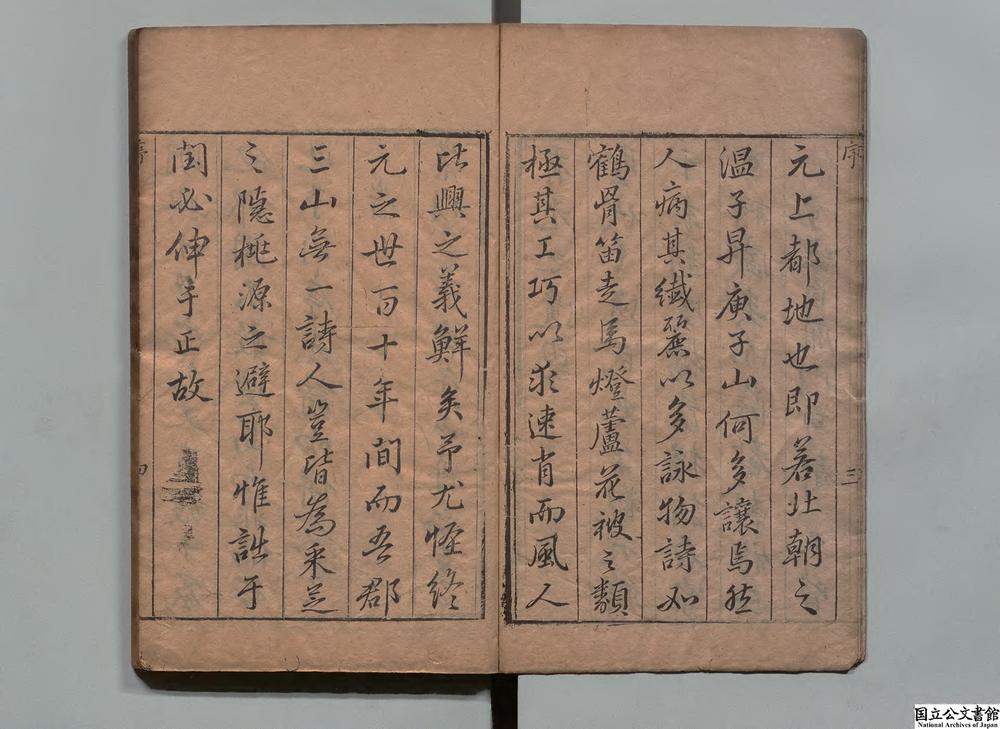 序
元上都地也即若北朝之
温子昇庾子山何多讓焉然
人病其纖麗以多詠物詩如
鶴骨笛走馬燈蘆花被之類
極其工巧以求速肖而風人
三
比興之義鮮矣予尤怪終
元之世百十年間而吾郡
三山無一詩人豈皆為采芝
之隱桃源之避耶惟詘于
閏必伸于正故
四
国立公文書館
National Archives of Japan